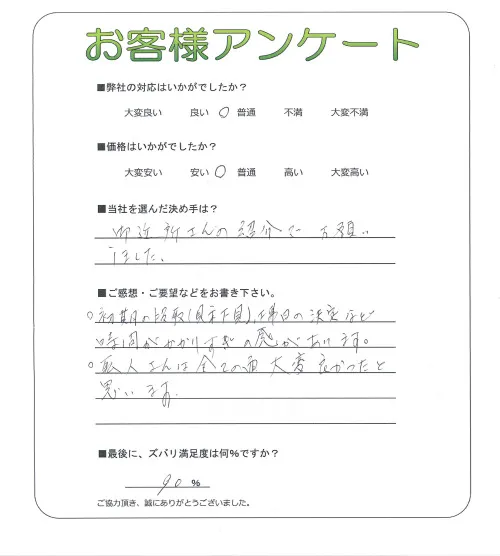 お客様アンケート
■弊社の対応はいかがでしたか？
大変良い 良い 普通 不満 大変不満
■価格はいかがでしたか？
大変安い 安い 普通 高い 大変高い
■当社を選んだ決め手は？
御近所さんの紹介でお願い
しました、
■ご感想・ご要望などをお書き下さい。
○初期の段取(見本下見)、工事日の決定など
時間がかかりすぎの感があります。
○職人さんは全ての面大変良かったと
思います.
■最後に、ズバリ満足度は何%ですか？
90 %
ご協力頂き、誠にありがとうございました。